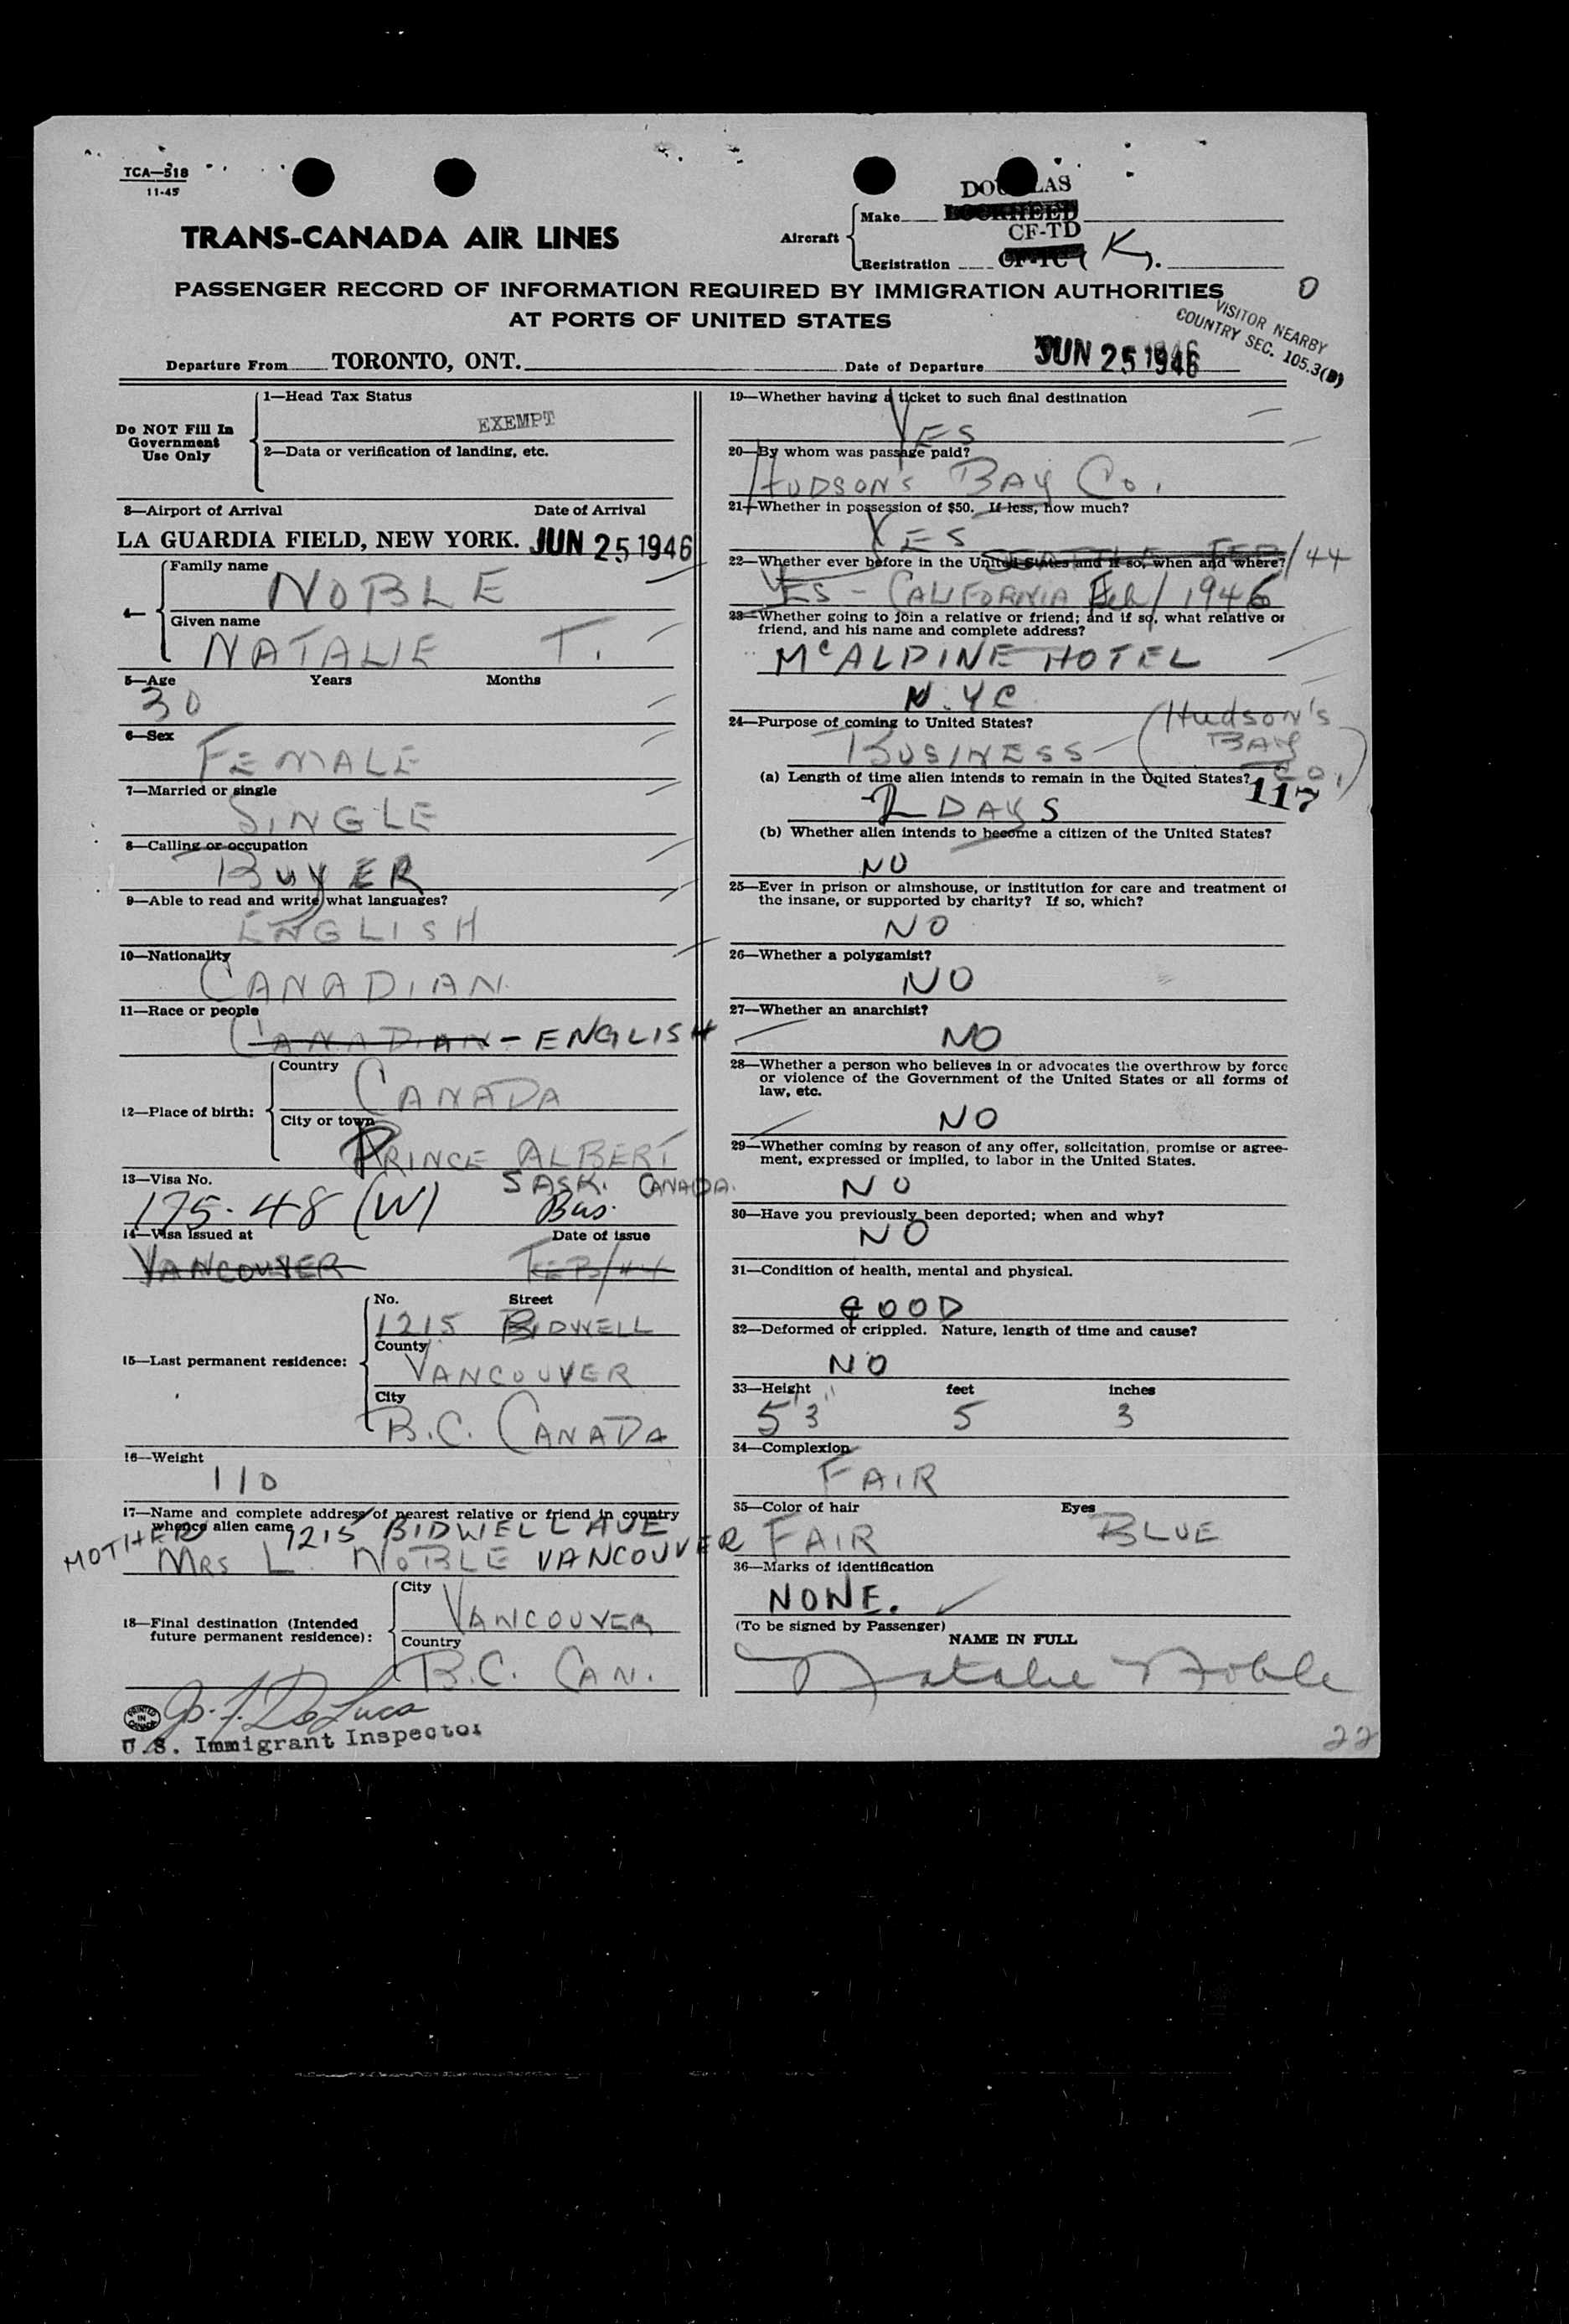 TCA—518
11-45
TRANS-CANADA AIR LINES
Aircraft
Make DOUGLAS
LOCKHEED
CF-TD
Registration CF-TC ( K ).
PASSENGER RECORD OF INFORMATION REQUIRED BY IMMIGRATION AUTHORITIES
AT PORTS OF UNITED STATES
O
VISITOR NEARBY
COUNTRY SEC. 105.3(B)
Departure From TORONTO, ONT.
Date of Departure JUN 25 1946
Do NOT Fill In
Government
Use Only
1—Head Tax Status
EXEMPT
2—Data or verification of landing, etc.
3—Airport of Arrival Date of Arrival
LA GUARDIA FIELD, NEW YORK. JUN 25 1946
4—
Family name
NOBLE
Given name
NATALIE T.
5—Age Years Months
30
6—Sex
FEMALE
7—Married or single
SINGLE
8—Calling or occupation
BUYER
9—Able to read and write what languages?
ENGLISH
10—Nationality
CANADIAN
11—Race or people
CANADIAN - ENGLISH
12—Place of birth:
Country
CANADA
City or town
PRINCE ALBERT
SASK. CANADA.
13—Visa No.
175-48 (W) Bus.
14—Visa issued at Date of issue
VANCOUVER FEB/44
15—Last permanent residence:
No. Street
1215 BIDWELL
County
VANCOUVER
City
B.C. CANADA
16—Weight
110
17—Name and complete address of nearest relative or friend in country
whence alien came
MOTHER 1215 BIDWELL AVE
MRS L. NOBLE VANCOUVER
18—Final destination (Intended
future permanent residence):
City
VANCOUVER
Country
B.C. CAN.
PRINTED IN CANADA
Jo. F. De Luca
U.S. Immigrant Inspector
19—Whether having a ticket to such final destination
YES
20—By whom was passage paid?
HUDSON'S BAY CO.
21—Whether in possession of $50. If less, how much?
YES
SEATTLE FEB/44
22—Whether ever before in the United States and if so, when and where?
YES - CALIFORNIA Feb/1946
23—Whether going to join a relative or friend; and if so, what relative or
friend, and his name and complete address?
McALPINE HOTEL
N.Y.C
24—Purpose of coming to United States?
BUSINESS - (Hudson's
BAY
CO.)
(a) Length of time alien intends to remain in the United States?
117
2 DAYS
(b) Whether alien intends to become a citizen of the United States?
NO
25—Ever in prison or almshouse, or institution for care and treatment of
the insane, or supported by charity? If so, which?
NO
26—Whether a polygamist?
NO
27—Whether an anarchist?
NO
28—Whether a person who believes in or advocates the overthrow by force
or violence of the Government of the United States or all forms of
law, etc.
NO
29—Whether coming by reason of any offer, solicitation, promise or agree-
ment, expressed or implied, to labor in the United States.
NO
30—Have you previously been deported; when and why?
NO
31—Condition of health, mental and physical.
GOOD
32—Deformed or crippled. Nature, length of time and cause?
NO
33—Height feet inches
5'3" 5 3
34—Complexion
FAIR
35—Color of hair Eyes
FAIR BLUE
36—Marks of identification
NONE.
(To be signed by Passenger)
NAME IN FULL
Natalie Noble
22